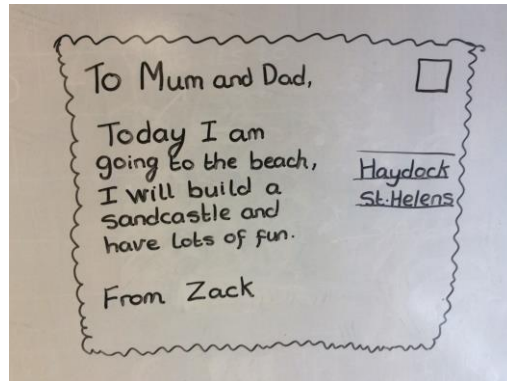 To Mum and Dad,
Today I am
going to the beach,
I will build a
sandcastle and
have lots of fun.
From Zack
Haydock
St.Helens